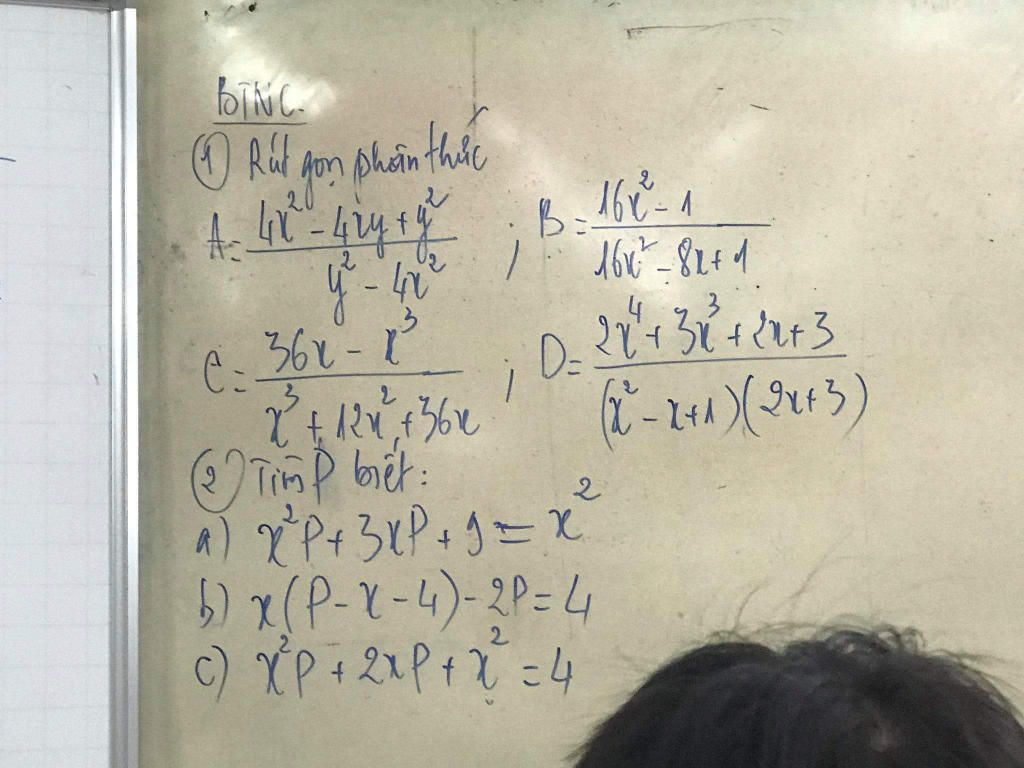 BTNC.
① Rút gọn phân thức
A = (4x² - 4xy + y²)/(y² - 4x²) ; B = (16x² - 1)/(16x² - 8x + 1)
C = (36x - x³)/(x³ + 12x² + 36x) ; D = (2x⁴ + 3x³ + 2x + 3)/((x² - x + 1)(2x + 3))
② Tìm P biết:
a) x²P + 3xP + 9 = x²
b) x(P - x - 4) - 2P = 4
c) x²P + 2xP + x² = 4